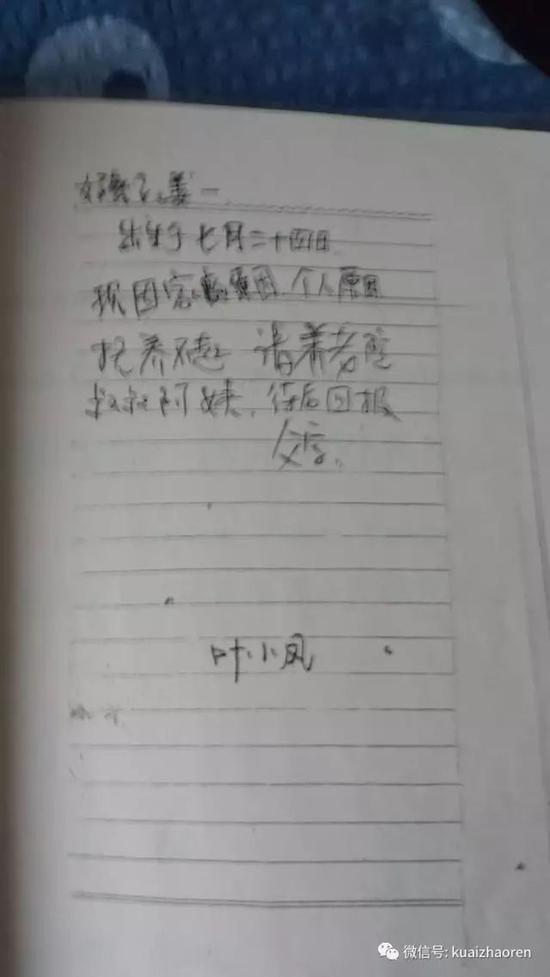 出生于七月二十四日
现因家庭原因 个人原因
抚养不起 请养老院
叔叔阿姨，待后回报
叶小凤
微信号: kuaizhaoren